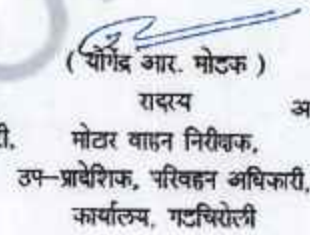 ( योगेंद्र आर. मोडक )
रादरय
अ
री, मोटार वाहन निरीक्षक,
उप-प्रादेशिक, परिवहन अधिकारी,
कार्यालय, गडचिरोली